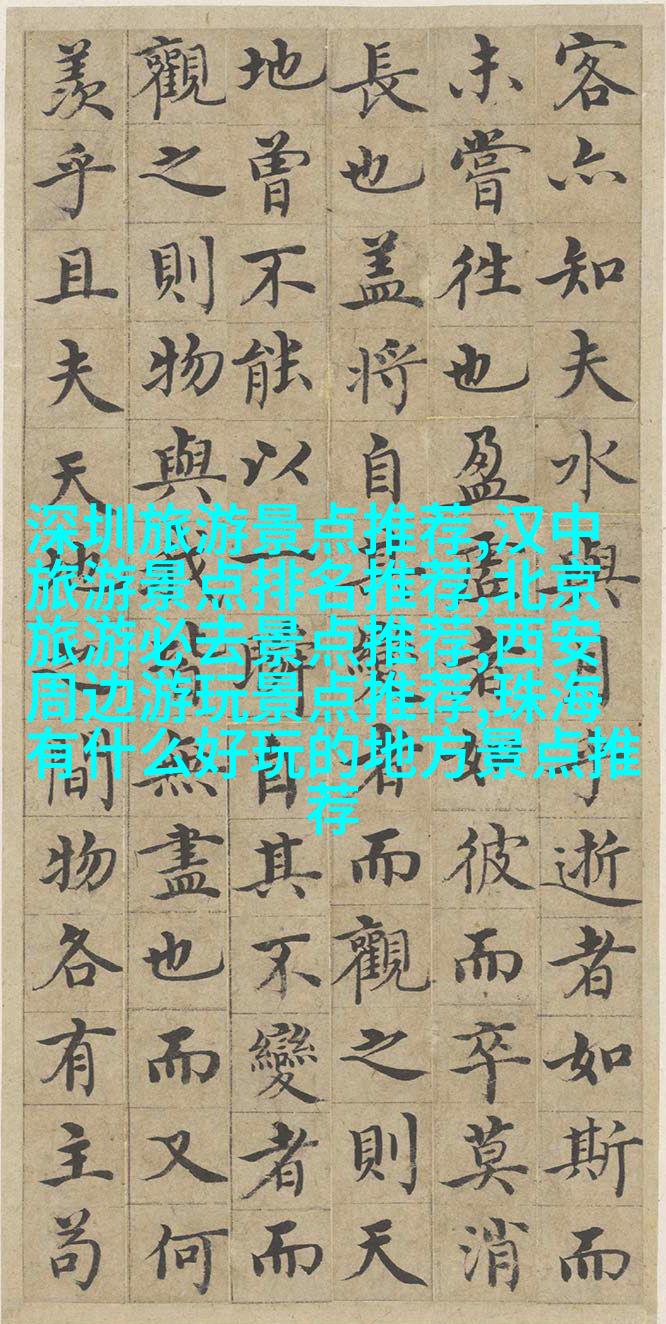 客亦知夫水與月乎逝者如斯而
未嘗往也盈虛者如彼而卒莫消
長也盖將自其變者而觀之則天
地曾不能以一瞬自其不變者而
觀之則物與我皆無盡也而又何
羨乎且夫天地之間物各有主苟
深圳旅游景点推荐,汉中
旅游景点排名推荐,北京
旅游必去景点推荐,西安
周边游玩景点推荐,珠海
有什么好玩的地方景点推
荐